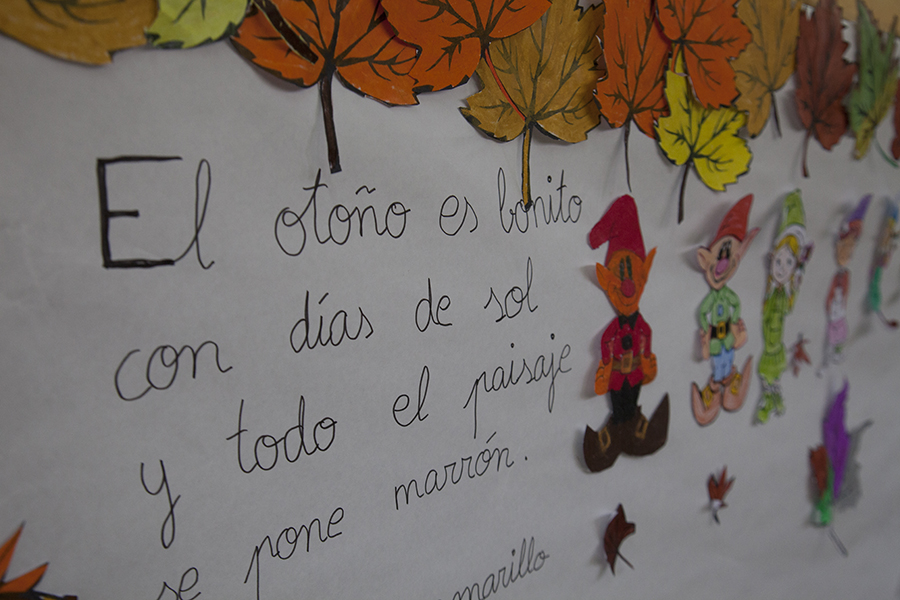 El otoño es bonito
con días de sol
y todo el paisaje
se pone marrón.
amarillo